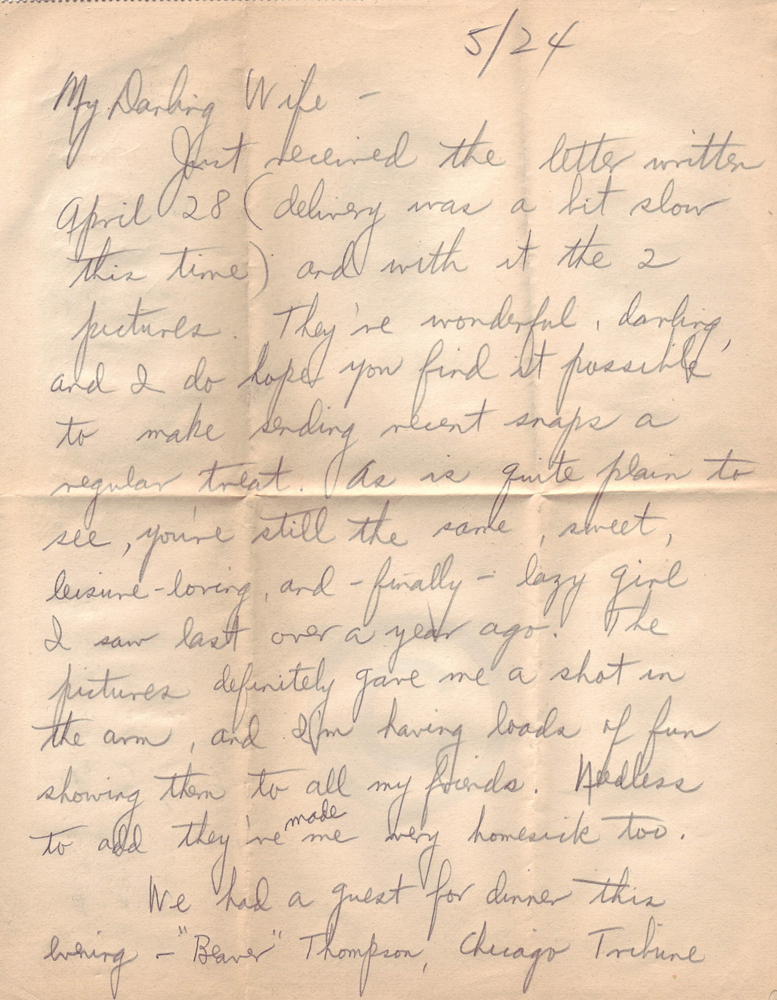 5/24
My Darling Wife -
Just received the letter written
April 28 (delivery was a bit slow
this time) and with it the 2
pictures. They're wonderful, darling,
and I do hope you find it possible
to make sending recent snaps a
regular treat. As is quite plain to
see, you're still the same, sweet,
leisure-loving, and - finally - lazy girl
I saw last over a year ago. The
pictures definitely gave me a shot in
the arm, and I'm having loads of fun
showing them to all my friends. Needless
to add they've made me very homesick too.
We had a guest for dinner this
evening - "Beaver" Thompson, Chicago Tribune